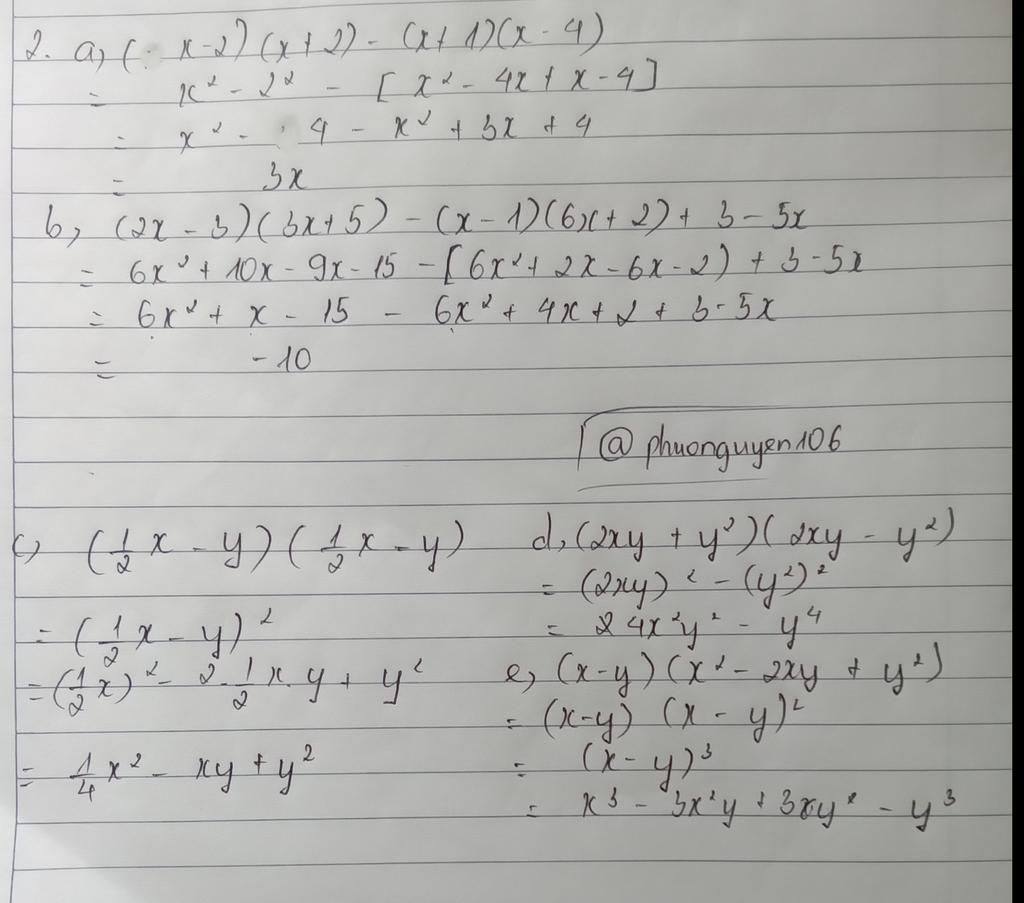 2. a, (x-2)(x+2) - (x+1)(x-4)
= x² - 2² - [x² - 4x + x - 4]
= x² - 4 - x² + 3x + 4
= 3x
b, (2x - 3)(3x+5) - (x-1)(6x+2) + 3 - 5x
= 6x² + 10x - 9x - 15 - [6x² + 2x - 6x - 2) + 3 - 5x
= 6x² + x - 15 - 6x² + 4x + 2 + 3 - 5x
= -10
@phuonguyen106
c, (1/2x - y)(1/2x - y)
= (1/2x - y)²
= (1/2x)² - 2.1/2x.y + y²
= 1/4x² - xy + y²
d, (2xy + y²)(2xy - y²)
= (2xy)² - (y²)²
= 4x²y² - y⁴
e, (x-y)(x² - 2xy + y²)
= (x-y) (x - y)²
= (x - y)³
= x³ - 3x²y + 3xy² - y³